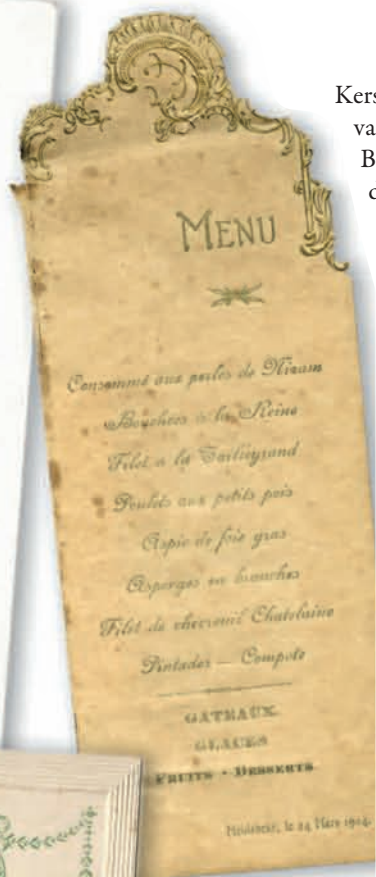 Kers
va
B
d
MENU
Consommé aux perles de Nizam
Bouchées à la Reine
Filet à la Tailleyrand
Poulets aux petits pois
Aspic de foie gras
Asperges en branches
Filet de chevreuil Chatelaine
Pintades — Compote
GATEAUX
GLACES
FRUITS - DESSERTS
le 24 Mars 1904.